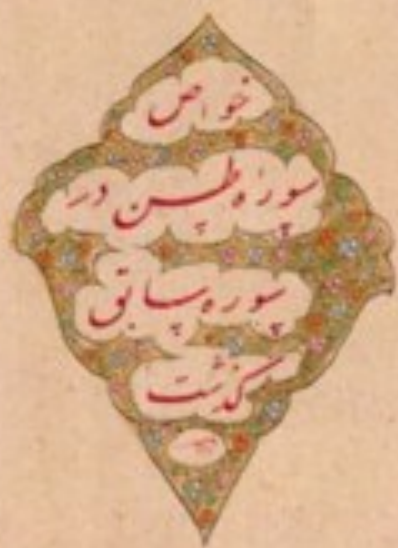 خواص
سوره طس در
سوره سابق
گذشت